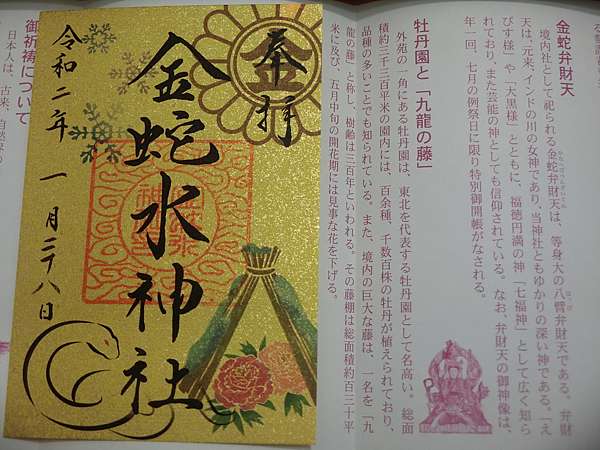 金蛇弁財天
境内社として祀られる金蛇弁財天は、等身大の八臂弁財天である。弁財
天は、元来、インドの川の女神であり、当神社ともゆかりの深い神である。「え
びす様」や「大黒様」とともに、福徳円満の神「七福神」として広く知ら
れており、また芸能の神としても信仰されている。なお、弁財天の御神像は、
年一回、七月の例祭日に限り特別御開帳がなされる。
牡丹園と「九龍の藤」
外苑の一角にある牡丹園は、東北を代表する牡丹園として名高い。総面
積約三千三百平米の園内には、百余種、千数百株の牡丹が植えられており、
品種の多いことでも知られている。また、境内の巨大な藤は、一名を「九
龍の藤」と称し、樹齢は三百年といわれる。その藤棚は総面積約百三十平
米に及び、五月中旬の開花期には見事な花を下げる。
奉拝
金蛇水神社
令和二年 一月二十八日
御祈祷について
日本人は、古来、自然界の